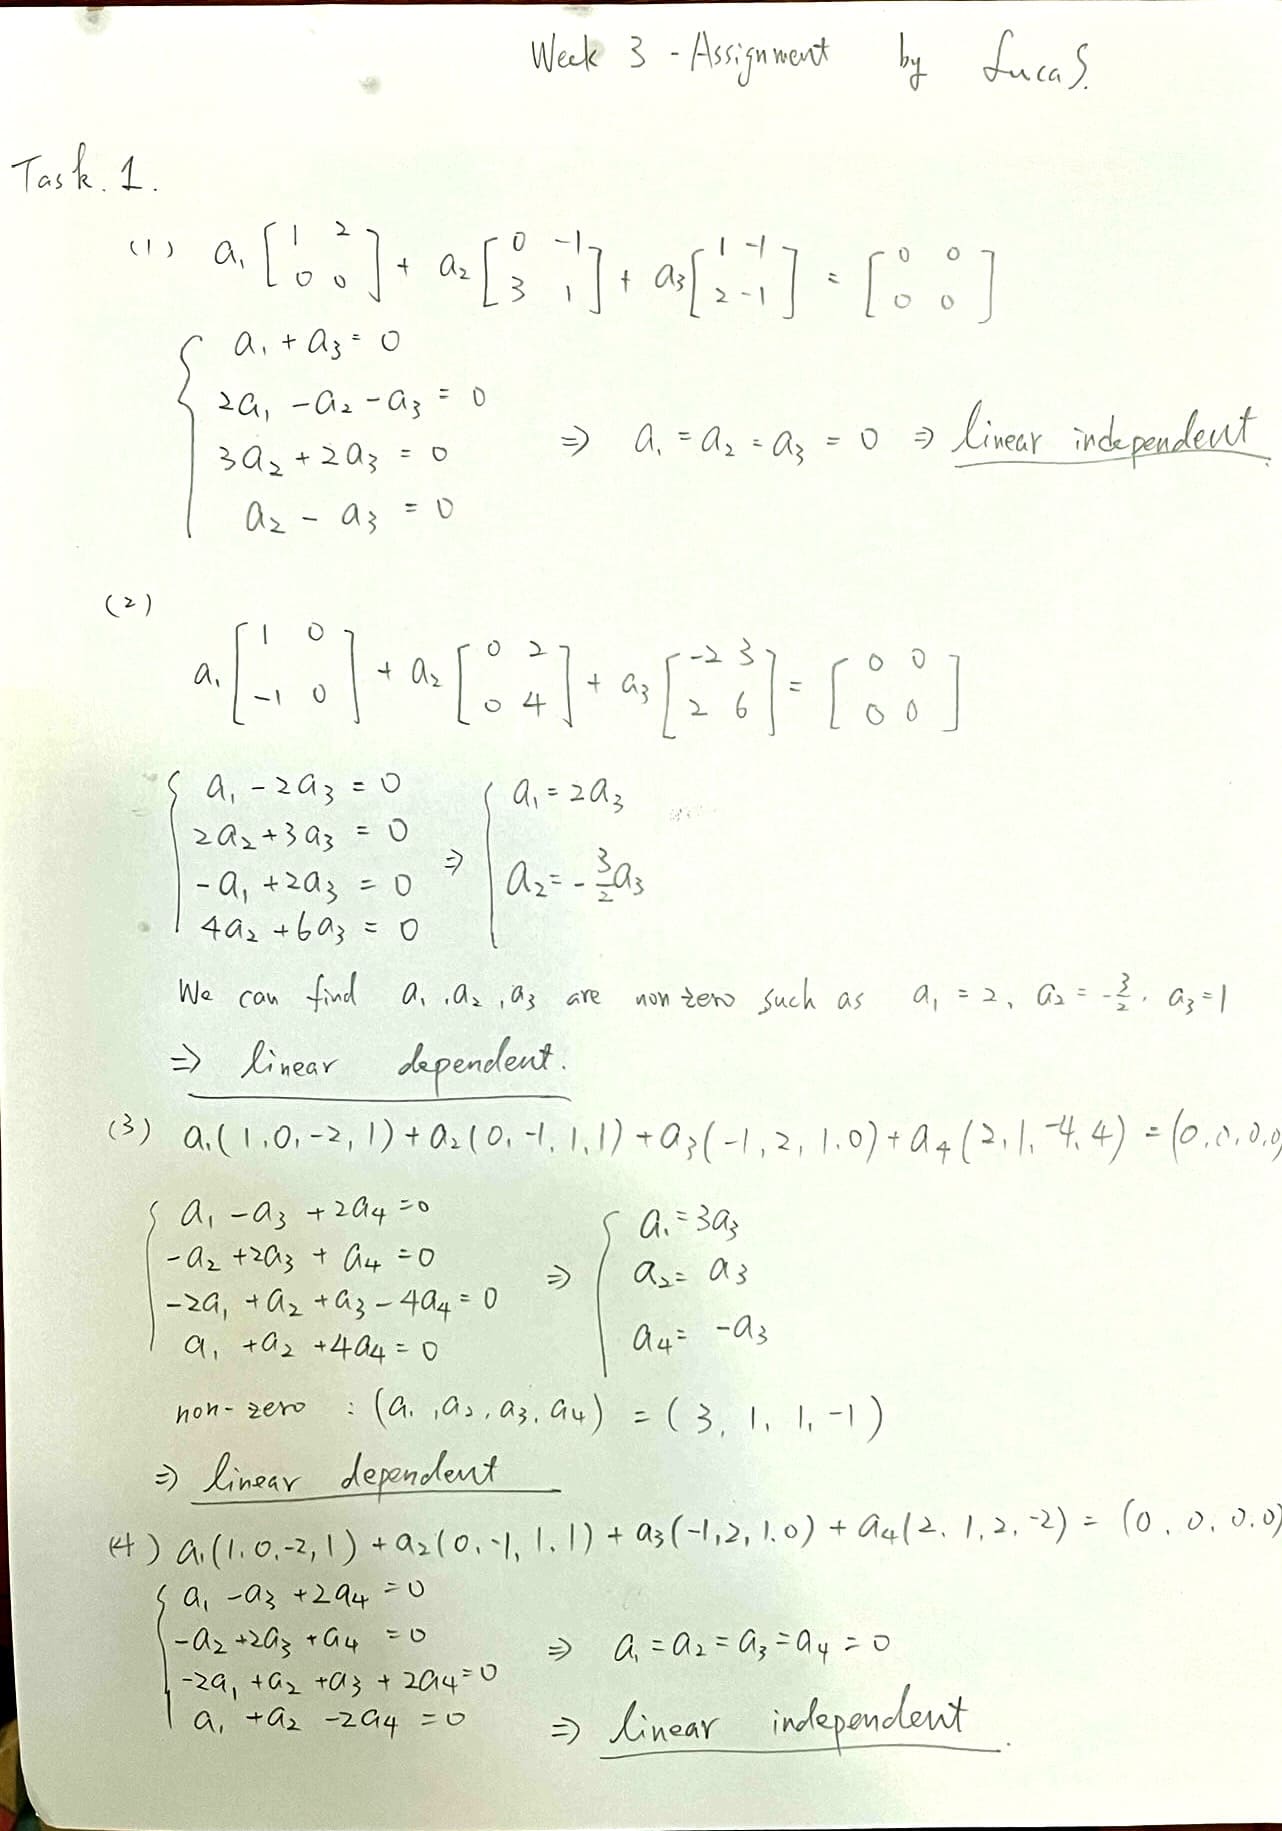 Week 3 - Assignment by Lucas.
Task. 1.
(1) a₁ [1 2; 0 0] + a₂ [0 -1; 3 1] + a₃ [1 -1; 2 -1] = [0 0; 0 0]
a₁ + a₃ = 0
2a₁ - a₂ - a₃ = 0
3a₂ + 2a₃ = 0 ⇒ a₁ = a₂ = a₃ = 0 ⇒ linear independent.
a₂ - a₃ = 0
(2)
a₁ [1 0; -1 0] + a₂ [0 2; 0 4] + a₃ [-2 3; 2 6] = [0 0; 0 0]
a₁ - 2a₃ = 0 a₁ = 2a₃
2a₂ + 3a₃ = 0
-a₁ + 2a₃ = 0 ⇒ a₂ = - 3/2 a₃
4a₂ + 6a₃ = 0
We can find a₁, a₂, a₃ are non zero such as a₁ = 2, a₂ = -3/2, a₃ = 1
⇒ linear dependent.
(3) a₁(1, 0, -2, 1) + a₂(0, -1, 1, 1) + a₃(-1, 2, 1, 0) + a₄(2, 1, -4, 4) = (0, 0, 0, 0
a₁ - a₃ + 2a₄ = 0 a₁ = 3a₃
-a₂ + 2a₃ + a₄ = 0 ⇒ a₂ = a₃
-2a₁ + a₂ + a₃ - 4a₄ = 0
a₁ + a₂ + 4a₄ = 0 a₄ = -a₃
non-zero : (a₁, a₂, a₃, a₄) = (3, 1, 1, -1)
⇒ linear dependent
(4) a₁(1, 0, -2, 1) + a₂(0, -1, 1, 1) + a₃(-1, 2, 1, 0) + a₄(2, 1, 2, -2) = (0, 0, 0, 0)
a₁ - a₃ + 2a₄ = 0
-a₂ + 2a₃ + a₄ = 0 ⇒ a₁ = a₂ = a₃ = a₄ = 0
-2a₁ + a₂ + a₃ + 2a₄ = 0
a₁ + a₂ - 2a₄ = 0 ⇒ linear independent.